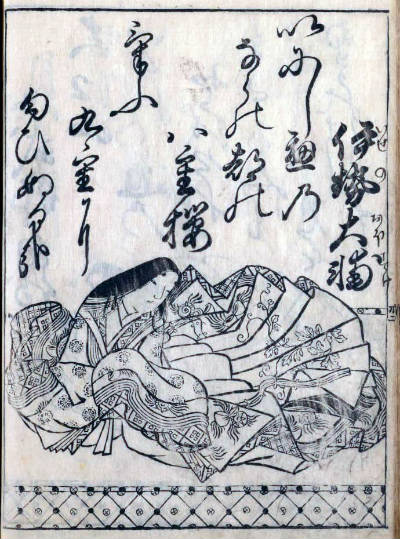 伊勢大輔
いにしへの
ならの都の
八重櫻
けふ
九重に
匂ひぬる哉